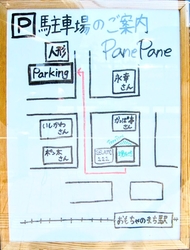 P 駐車場のご案内
PanePane
人形
Parking
永幸
さん
いしかわ
さん
かっぱ亭
さん
さん
おもちゃのまち駅